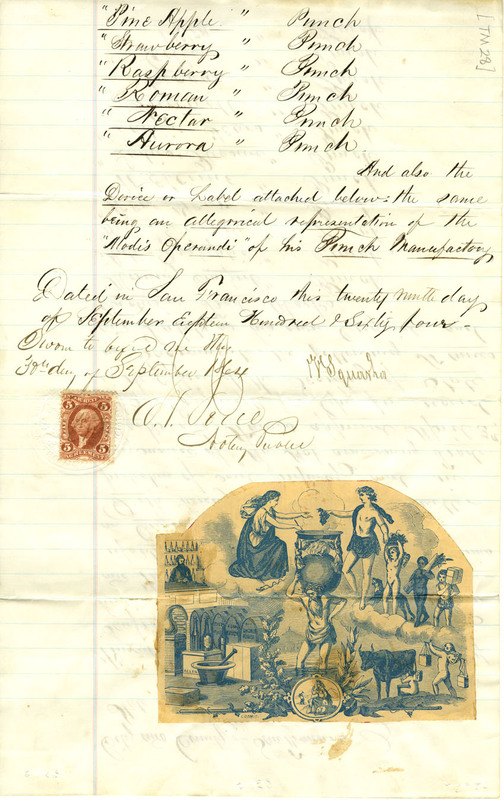 "Pine Apple " Punch
"Strawberry " Punch
"Raspberry " Punch
"Roman " Punch
" Nectar " Punch
" Aurora " Punch
[TM 28]
And also the
Device or Label attached below: the same
being an allegorical representation of the
"Modis Operandi" of his Punch Manufactory
Dated in San Francisco this twenty ninth day
of September Eighteen Hundred & Sixty four -
Sworn to before me this
30th day of September 1864
V Squarza
Notary Public
5 5
5 5